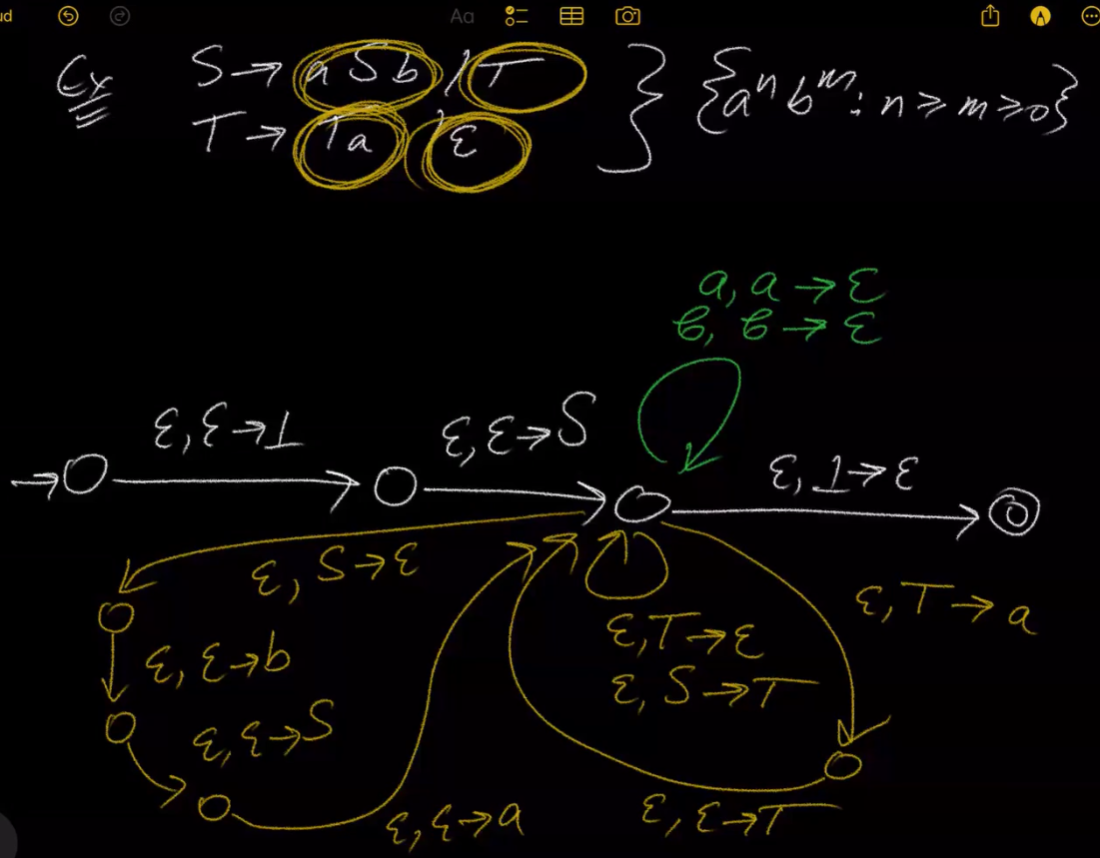 ud
Aa
Ex S → aSb | T
T → Ta | ε
{aⁿbᵐ: n ≥ m ≥ 0}
a, a → ε
b, b → ε
ε, ε → ⊥
ε, ε → S
ε, ⊥ → ε
ε, S → ε
ε, ε → b
ε, ε → S
ε, ε → a
ε, T → ε
ε, S → T
ε, T → a
ε, ε → T